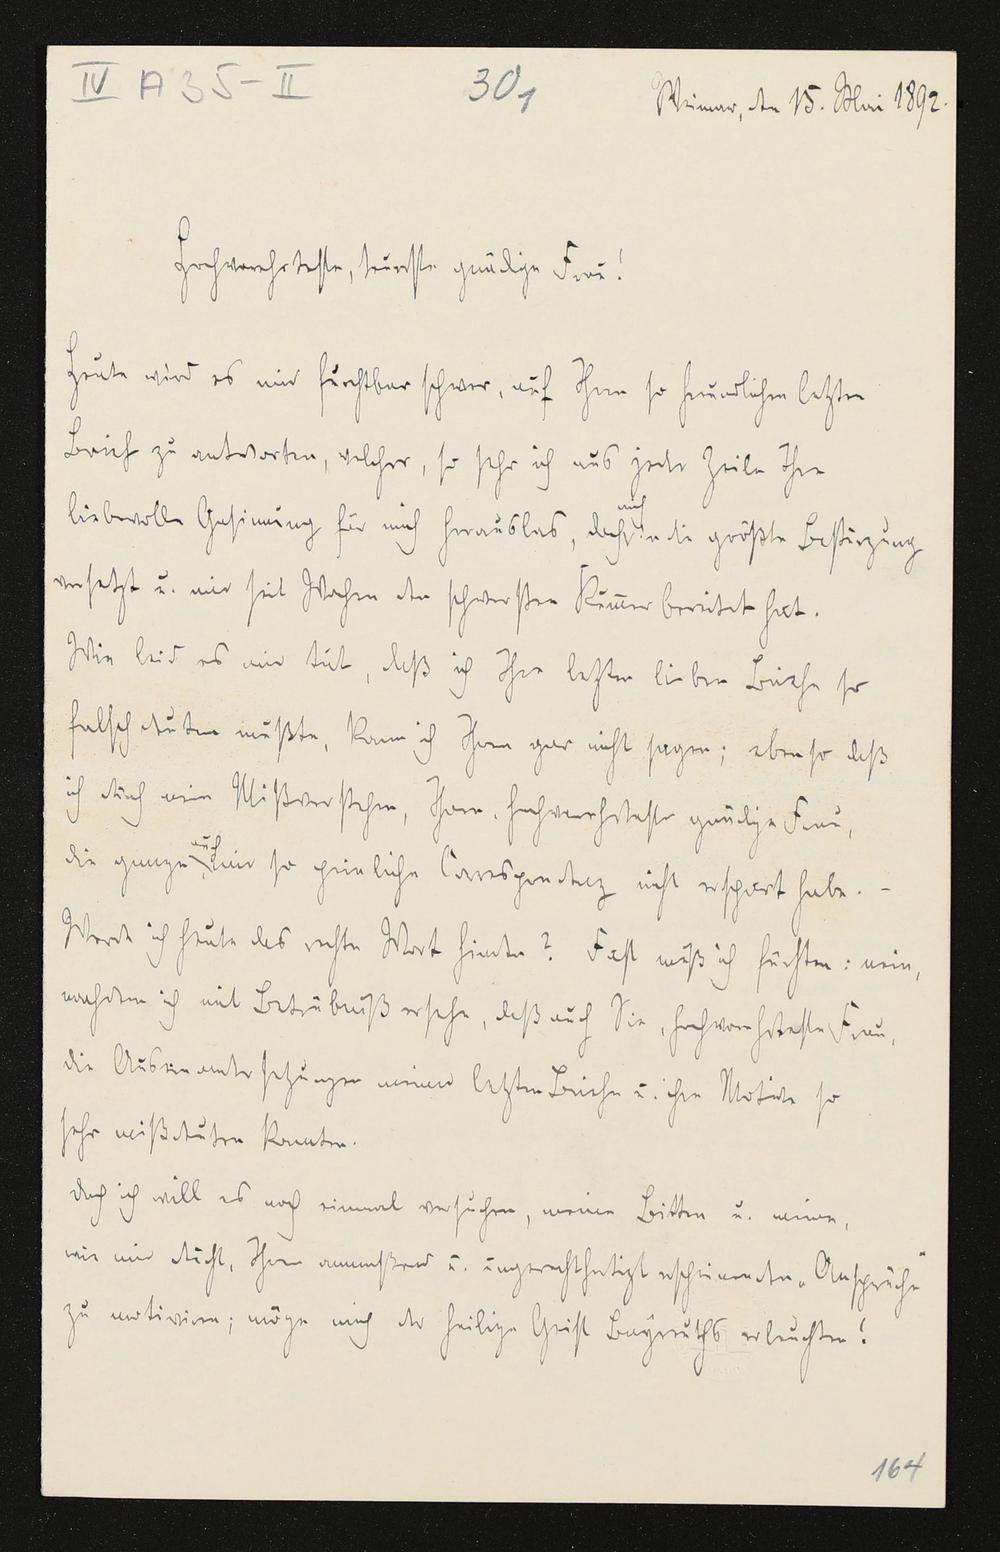 IV A 35-II
30₁
Weimar, den 15. Mai 1892.
Hochverehrteste, teuerste gnädige Frau!
Heute wird es mir furchtbar schwer, auf Ihren so freundlichen letzten
Brief zu antworten, welcher, so sehr ich aus jeder Zeile Ihre
liebevolle Gesinnung für mich herauslas, doch mich in die größte Bestürzung
versetzt u. mir seit Wochen den schwersten Kum̅er bereitet hat.
Wie leid es mir tut, daß ich Ihre letzten lieben Briefe so
falsch deuten mußte, kann ich Ihnen gar nicht sagen; ebenso daß
ich durch mein Mißverstehen, Ihnen, hochverehrteste gnädige Frau,
die ganze auch mir so peinliche Correspondenz nicht erspart habe. –
Werde ich heute das rechte Wort finden? Fast muß ich fürchten: nein,
nachdem ich mit Betrübniß ersehe, daß auch Sie, hochverehrteste Frau,
die Auseinandersetzungen meiner letzten Briefe u. ihre Motive so
sehr mißdeuten konnten.
Doch ich will es noch einmal versuchen, meine Bitten u. meine,
wie mir däucht, Ihnen anmaßend u. ungerechtfertigt erscheinenden „Ansprüche"
zu motiviren; möge mich der heilige Geist Bayreuths erleuchten!
164